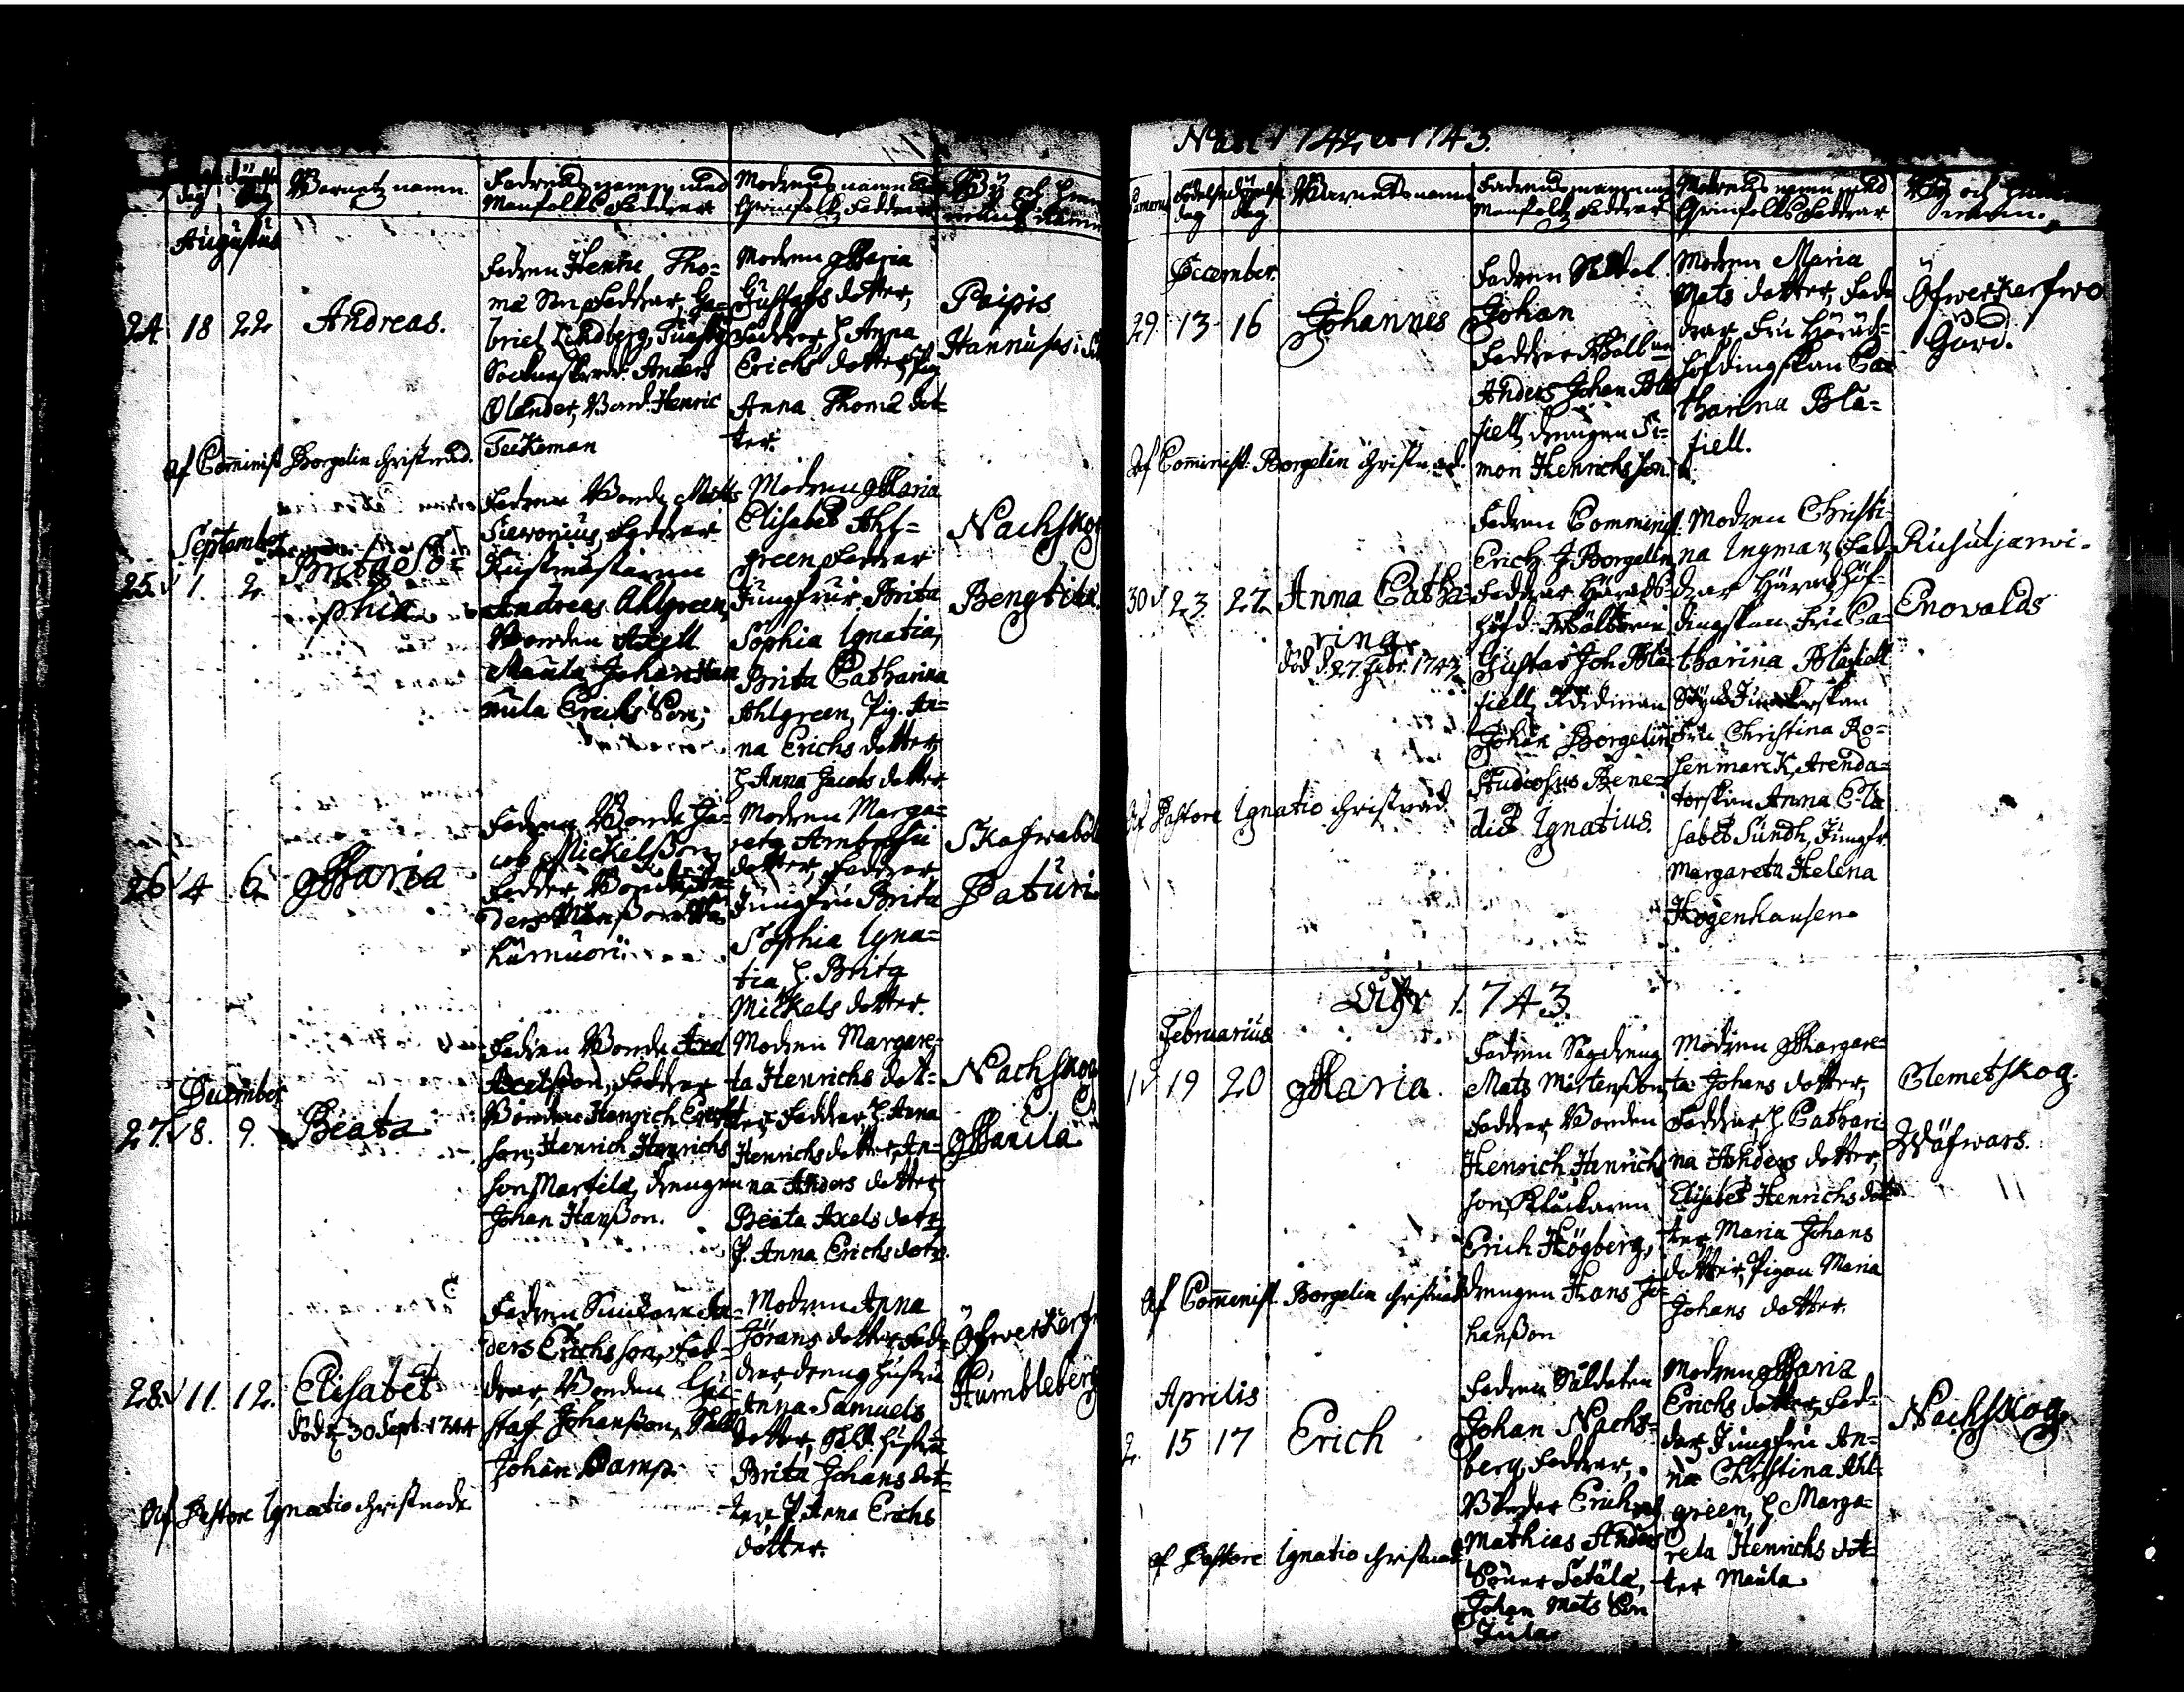 dag
dag
Barnetz namn.
Fadrens namn med
Manfolks Faddrar
Modrens namn
Qwinfolks Faddrar
By och
namn
Augustus
24
18
22
Andreas.
Fadren Henric Tho-
mæ Son Faddrar, Ga-
briel Lindberg,
Anders
Olander, Bond. Henric
Teckeman
Modren Maria
Gustafs dotter,
Faddrar, H. Anna
Erichs dotter, Pig
Anna Thomæ dot-
ter.
Paipis
Hannusas
Af Comminist. Borgelin Christnad.
September
25.
1.
2.
Brita So-
phia
Fadren Bonde Matts
Sieronius, Faddrar
Andreas Ahlgreen,
Bonden Axell
Maula Johan Han
nula Erichs Son;
Modren Maria
Elisabet Ahl-
green Faddrar
Jungfrur Brita
Sophia Ignatia,
Brita Catharina
Ahlgreen, Pig. An-
na Erichs dotter,
H. Anna Jacobs dotter
Nachskog
Bengtila.
26
4
6
Maria
Fadren Bonde Ja-
cob Mickelsson,
Fadder, Bonde An-
ders
Modren Marga-
reta Ambrosii
dotter, Faddrar
Jungfru Brita
Sophia Igna-
tia, H. Brita
Mickels dotter.
Skafwaböl
Paturi
December
27.
8.
9.
Beata
Fadren Bonde Axel
Axelsson, Faddrar
Bönder Henrich Erichs
son, Henrich Henrichs
son Martila, drengen
Johan Hansson.
Modren Margare-
ta Henrichs dot-
ter, Faddrar H. Anna
Henrichs dotter, An-
na Anders dotter
Beata Axels dotr
P. Anna Erichs dotr.
Nachskog
Maula
28.
11.
12.
Elisabet
död d. 30 Sept. 1744
Fadren An-
ders Erichsson, Fad-
drar, Bonden Gu-
staf Johansson, Sold
Johan Damp.
Modren Anna
Jörans dotter Fad-
drar, dreng hustru
Anna Samuels
dotter, Sold. hustru
Brita Johans dot-
ter P. Anna Erichs
dotter.
Humbleberg
Af Pastore Ignatio christnade
1742 et 1743.
dag
dag
Barnets namn
Fadrens namn
Manfolks Faddrar
Modrens namn med
Qwinfolks Faddrar
By och
namn.
December.
29
13
16
Johannes
Fadren
Johan
Faddrar Wälb.
Anders Johan Bla
fiell, drengen Si-
mon Henrichsson
Modren Maria
Mats dotter, Fad-
drar, Fru Härads-
höfdingskan Ca-
tharina Bla-
fiell.
Gård.
Af Comminist. Borgelin Christnad.
30
23
27
Anna Catha-
rina
död d. 27 Febr. 1743.
Fadren Comminist.
Erich J Borgelin,
Faddrar Härads-
höfd. Wälborne
Gustaf Joh Bla-
fiell, Rådman
Johan Borgelin,
Studiosus Bene-
dict Ignatius.
Modren Christi-
na Ingman, Fad-
drar Häradshöf-
dingskan Fru Ca-
tharina Blafiell
Styck Junkerskan
Fru Christina Ro-
senmarck, Arenda-
torskan Anna Eli-
sabet Sundh, Jungfr.
Margareta Helena
Hogenhausen
Rusutjærwi-
Enowalds
Af Pastore Ignatio christnad
Åhr 1743.
Februarius
1
19
20
Maria.
Fadren Sagdreng
Mats Mårtensson,
Faddrar, Bonden
Henrich Henrichs
son, Klåckaren
Erich Högberg,
drengen Hans Jo-
hansson
Modren Margare-
ta Johans dotter,
Faddrar, H. Cathari-
na Anders dotter,
Elisabet Henrichs dot-
ter Maria Johans
dotter, Pigan Maria
Johans dotter.
Clemetskog.
Wäfwars.
Af Comminist. Borgelin christnad
Aprilis
2.
15
17
Erich
Fadren Soldaten
Johan Nachs-
berg, Faddrar,
Bönder Erich och
Mathias Anders
Söner Setälä,
Johan Mats Son
Jula
Modren Maria
Erichs dotter, Fad-
drar, Jungfru An-
na Christina Ahl-
green, H Marga-
reta Henrichs dot-
ter Maula
Nachskog
Af Pastore Ignatio christnat